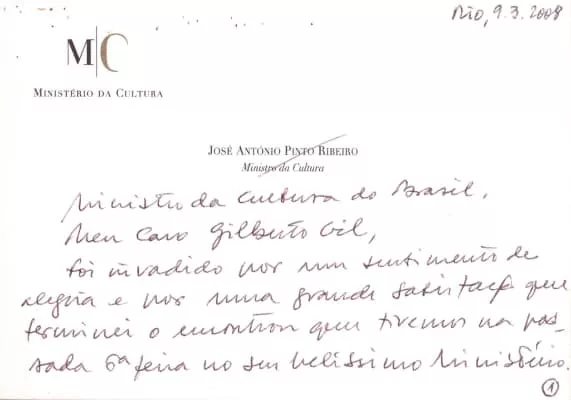 Rio, 9.3.2008
M|C
MINISTÉRIO DA CULTURA
JOSÉ ANTÓNIO PINTO RIBEIRO
Ministro da Cultura
Ministro da Cultura do Brasil,
Meu Caro Gilberto Gil,
foi invadido por um sentimento de
alegria e por uma grande satisfação que
terminei o encontro que tivemos na pas-
sada 6ª feira no seu belíssimo Ministério.
1